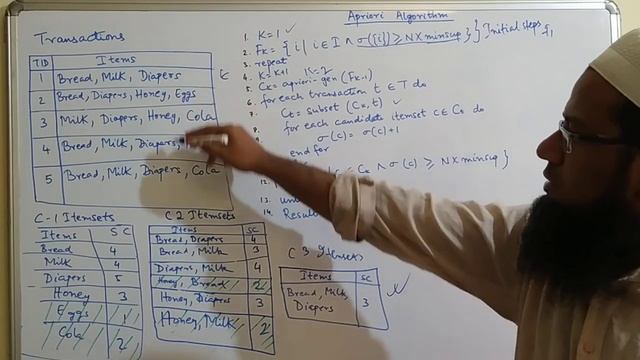 Apriori Algorithm
Transactions
TID Items
1 Bread, Milk, Diapers
2 Bread, Diapers, Honey, Eggs
3 Milk, Diapers, Honey, Cola
4 Bread, Milk, Diapers,
5 Bread, Milk, Diapers, Cola
1. K=1 ✓
2. Fk = { i | i ∈ I ∧ σ({i}) ≥ N X minsup } } Initial steps f1
3. repeat
4. K = K+1 K=2
5. Ck = apriori-gen (Fk-1)
6. for each transaction t ∈ T do
7. Ct = subset (Ck, t) ✓
8. for each candidate itemset c ∈ Ct do
σ(c) = σ(c)+1
end for
∈ Ck ∧ σ(c) ≥ N X minsup }
12.
un
14. Resul
C-1 Itemsets
Items SC
Bread 4
Milk 4
Diapers 5
Honey 3
Eggs 1
Cola 2
C2 Itemsets
Items SC
Bread, Diapers 4
Bread, Milk 3
Diapers, Milk 4
Honey, Bread 2
Honey, Diapers 3
Honey, Milk 2
C3 Itemsets
Items SC
Bread, Milk, Diapers 3